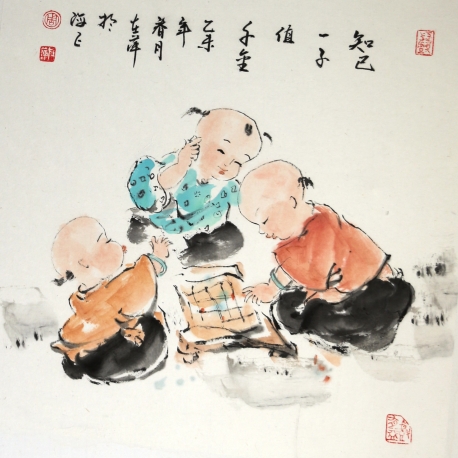 知己
一子
值
千金
乙未
年
春月
在萍
於
海上